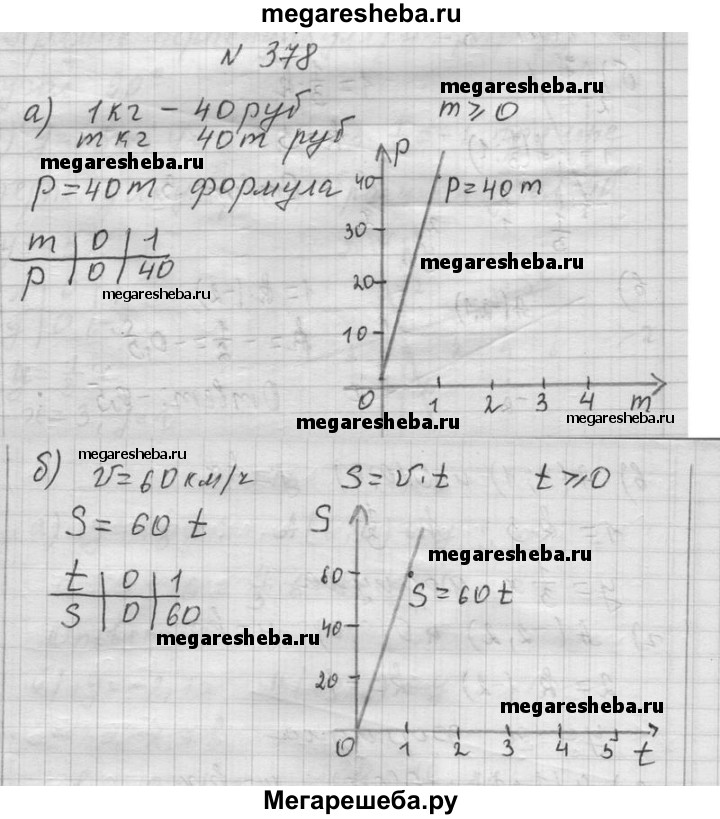 megaresheba.ru
N 378
megaresheba.ru
а) 1кг – 40 руб
m ⩾ 0
m кг 40m руб
megaresheba.ru
p = 40m формула
p
40
p = 40m
30
m | 0 | 1
p | 0 | 40
megaresheba.ru
20
megaresheba.ru
10
0 1 2 3 4 m
megaresheba.ru
megaresheba.ru
megaresheba.ru
б) v = 60 км/ч
S = v · t
t ⩾ 0
S = 60 t
S
megaresheba.ru
60
S = 60 t
t | 0 | 1
S | 0 | 60
megaresheba.ru
40
20
megaresheba.ru
0 1 2 3 4 5 t
Мегарешеба.ру